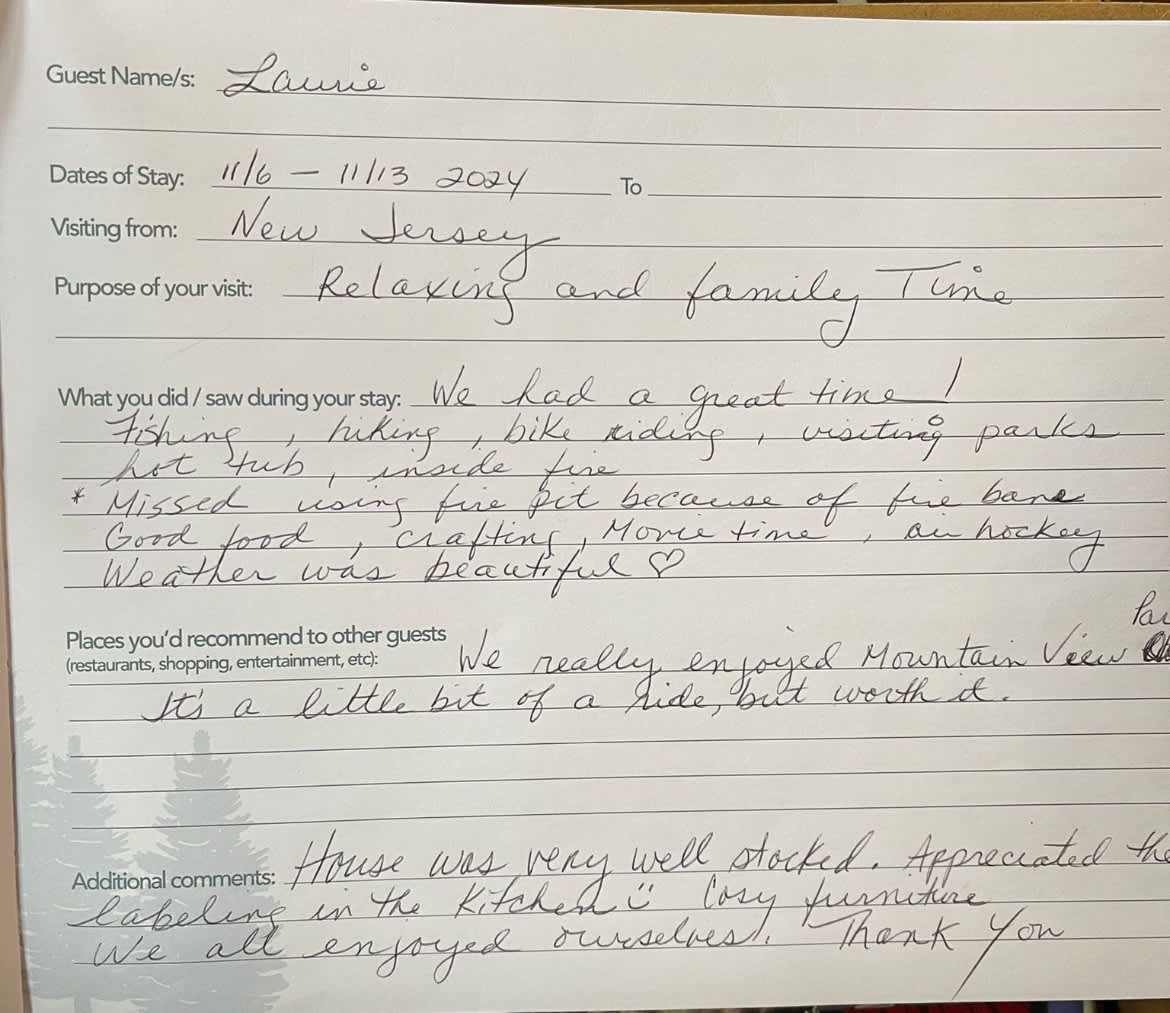 Guest Name/s: Laurie
Dates of Stay: 11/6 – 11/13 2024 To
Visiting from: New Jersey
Purpose of your visit: Relaxing and family Time
What you did / saw during your stay: We had a great time!
Fishing, hiking, bike riding, visiting parks
hot tub, inside fire
* Missed using fire pit because of fire bans
Good food, crafting, Movie time, air hockey
Weather was beautiful ♡
Places you'd recommend to other guests
(restaurants, shopping, entertainment, etc): We really enjoyed Mountain View
It's a little bit of a ride, but worth it.
Additional comments: House was very well stocked. Appreciated the
labeling in the Kitchen ü Cosy furniture
We all enjoyed ourselves!. Thank You